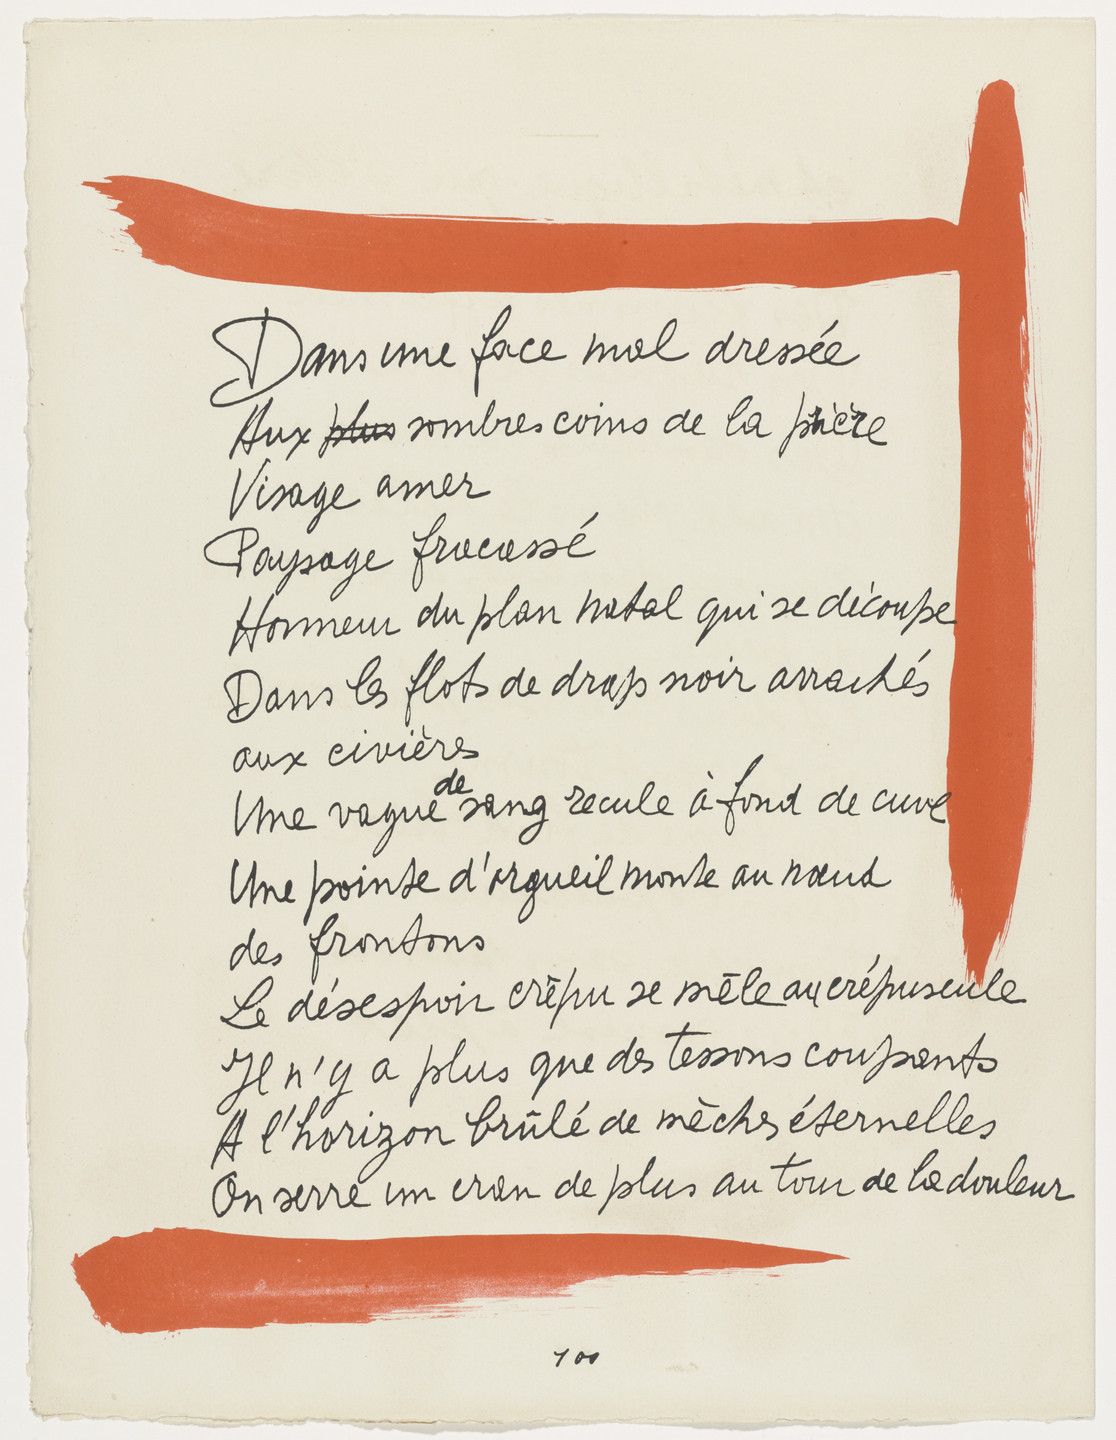 Dans une face mal dressée
Aux plus sombres coins de la prière
Visage amer
Paysage fracassé
Honneur du plan natal qui se découpe
Dans les flots de drap noir arrachés
aux civières
Une vague de sang recule à fond de cuve
Une pointe d'orgueil monte au nœud
des frontons
Le désespoir crêpu se mêle au crépuscule
Il n'y a plus que des tessons coupants
A l'horizon brûlé de mèches éternelles
On serre un cran de plus au tour de la douleur
100